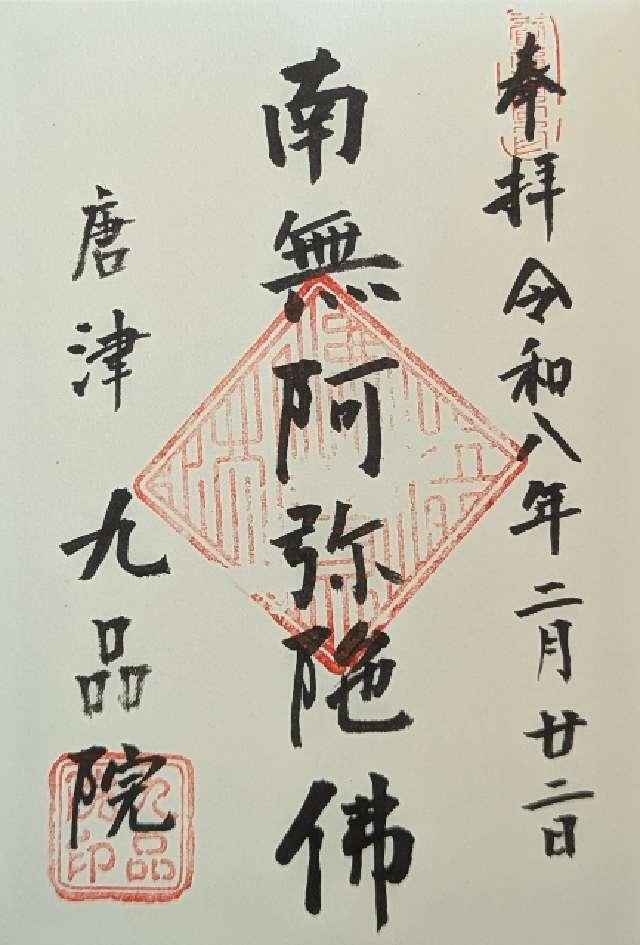 奉拝 令和八年二月廿二日
南無阿弥陀佛
唐津 九品院
九品院印